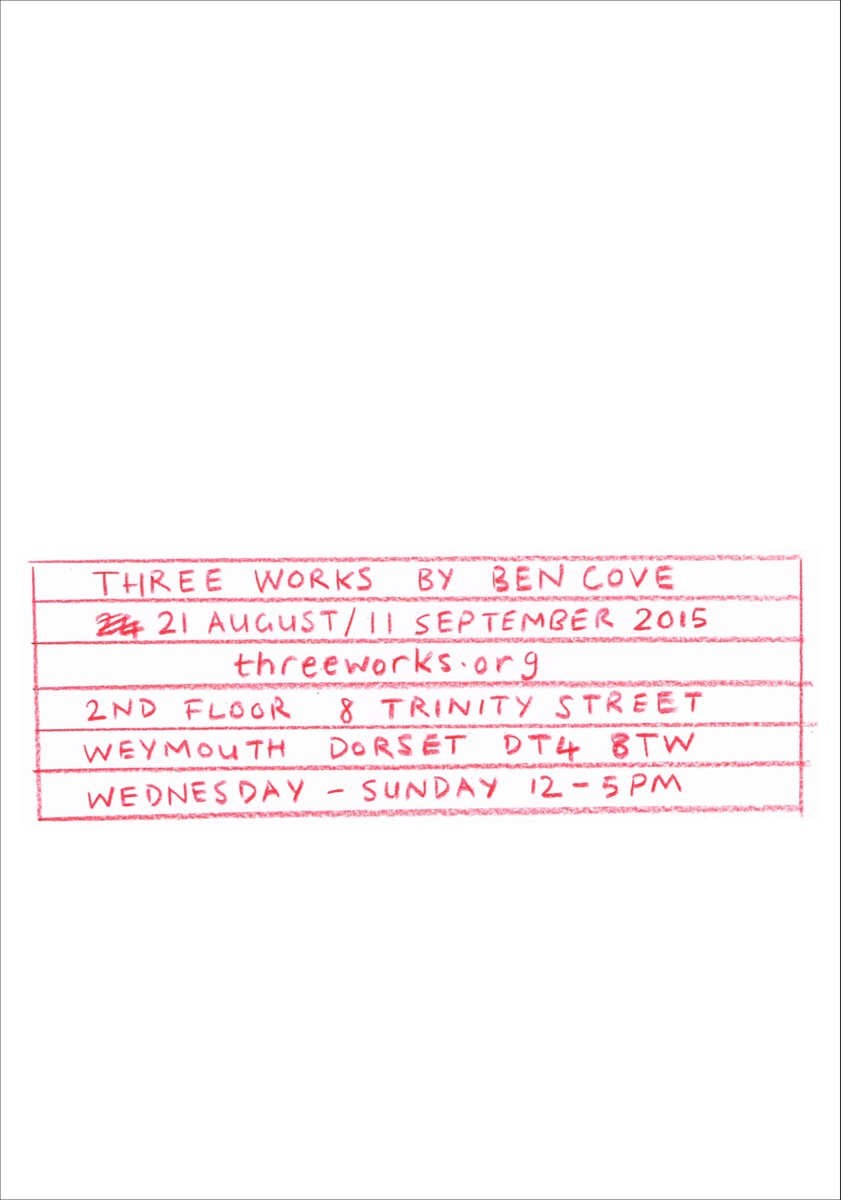 THREE WORKS BY BEN COVE
21 AUGUST/11 SEPTEMBER 2015
threeworks.org
2ND FLOOR 8 TRINITY STREET
WEYMOUTH DORSET DT4 8TW
WEDNESDAY - SUNDAY 12-5PM